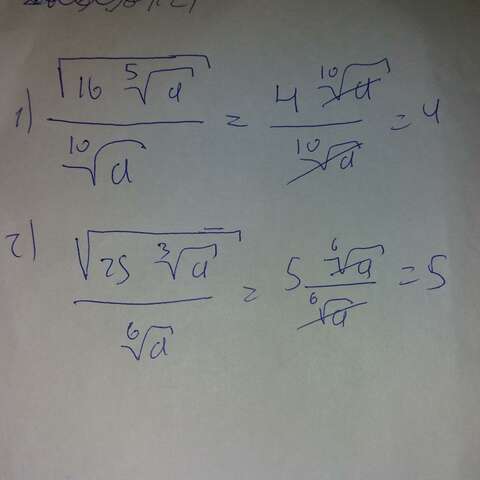 1) √(16 ⁵√a) / ¹⁰√a = 4 ¹⁰√a / ¹⁰√a = 4
2) √(25 ³√a) / ⁶√a = 5 ⁶√a / ⁶√a = 5